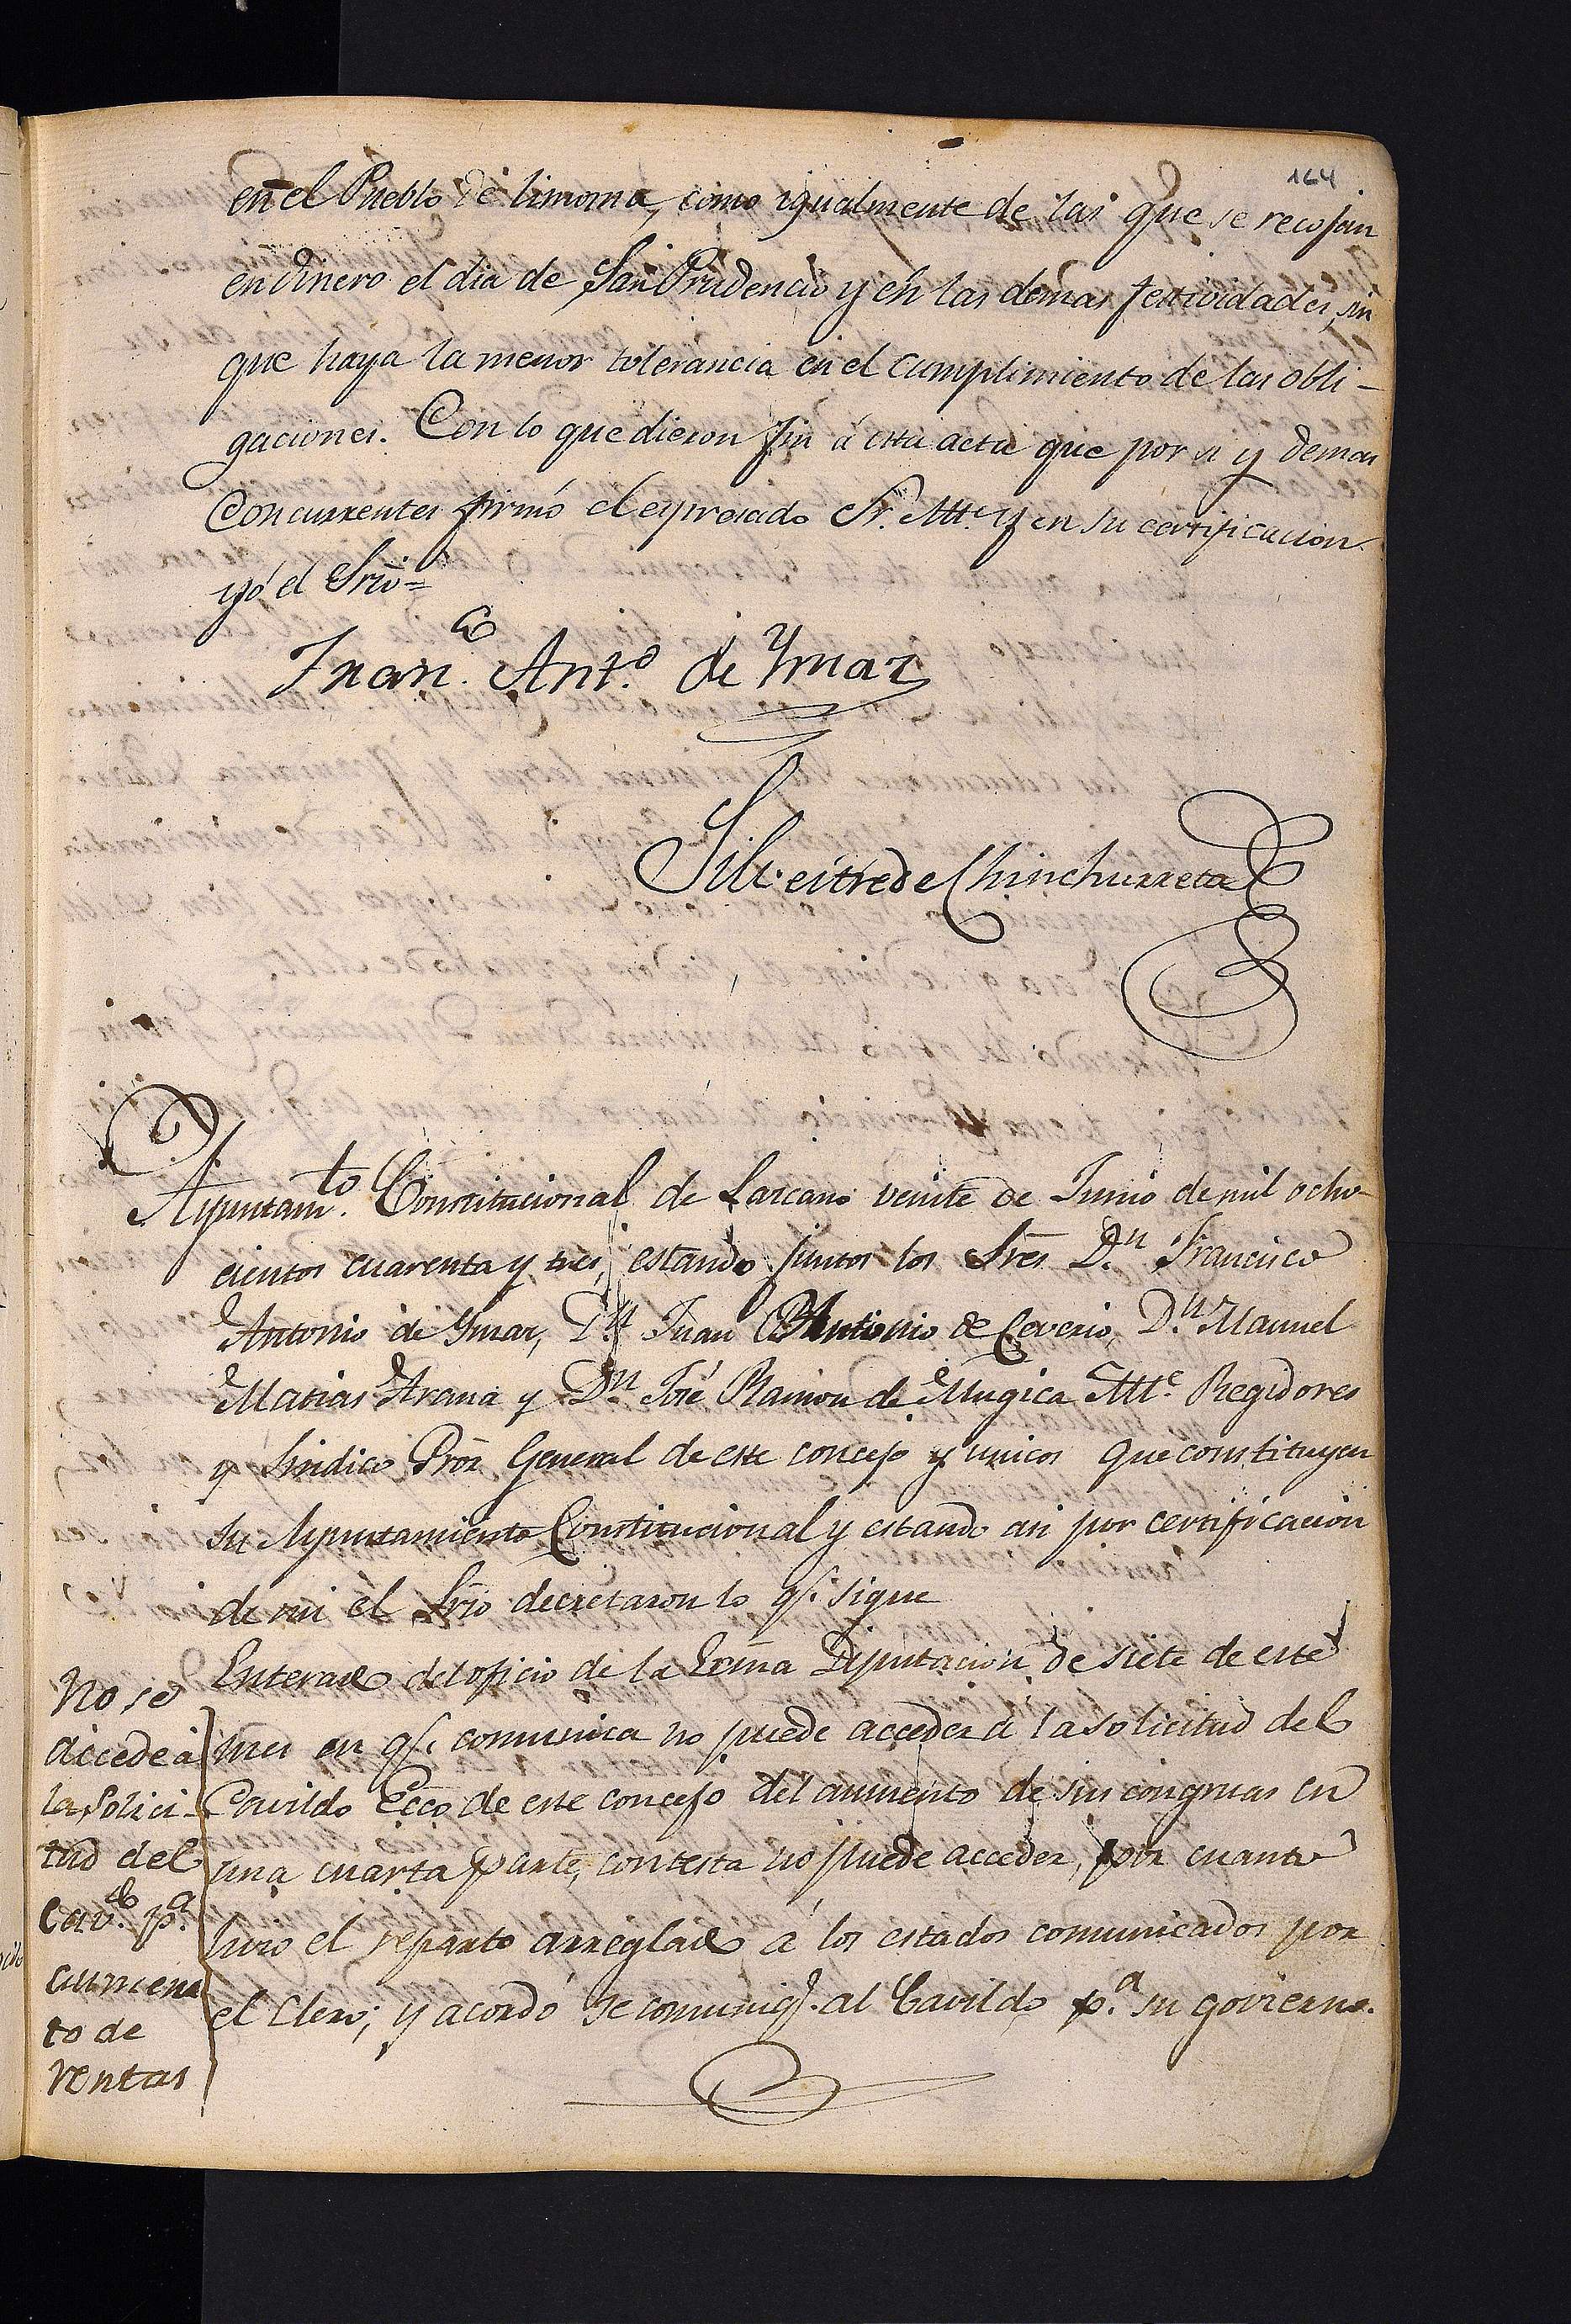 164
en el Pueblo de limosna, como igualmente de las que se recojan
en dinero el dia de San Prudencio y en las demas festividades, sin
que haya la menor tolerancia en el cumplimiento de las obli-
gaciones. Con lo que dieron fin á esta acta que por si y demas
Concurrentes firmó el espresado Sr. Alle. y en su certificacion
yó el Srio=
Fran.co Ant.o de Ymaz
Silvestre de Chinchurreta
Ayuntam.to Constitucional de Lazcano veinte de Junio de mil ocho-
cientos cuarenta y tres, estando juntos los Sres D.n Francisco
Antonio de Ymaz, D.n Juan Antonio de Ceverio, D.n Manuel
Matias Arana y D.n José Ramon de Mugica Alle. Regidores
y Sindico Pror General de este concejo y unicos que constituyen
su Ayuntamiento Constitucional y estando asi por certificacion
de mi el Srio decretaron lo q.e sigue
No se
accede á
la solici-
tud del
Cav.do p.a
aumen
to de
rentas
Enterado del oficio de la Exma Diputacion de siete de este
mes en q.e comunica no puede acceder á la solicitud del
Cavildo Ecco de este concejo del aumento de sus congruas en
una cuarta parte, contesta no puede acceder, por cuanto
hizo el reparto arreglado á los estados comunicados por
el clero; y acordó se comuniq.e al Cavildo p.a su govierno.